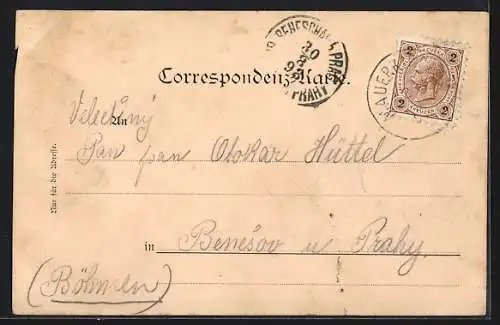 BENESCHAU b. PRAG
30
8
98
PRAHY
Correspondenz-Karte.
2 2
2 2
MAUER
Velectěný
An
Pan pan Otokar Hüttel
Nur für die Adresse.
in Benešov u Prahy.
(Böhmen)